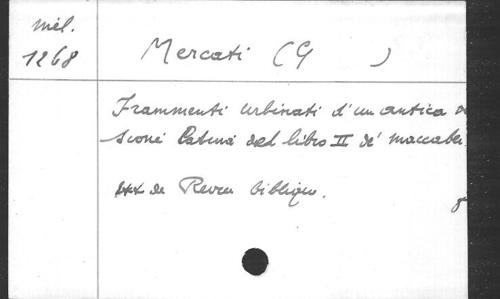 Mél.
1268
Mercati (G )
Frammenti Urbinati d'un antica
sione latina del libro II de' Maccabei
de Revue biblique.